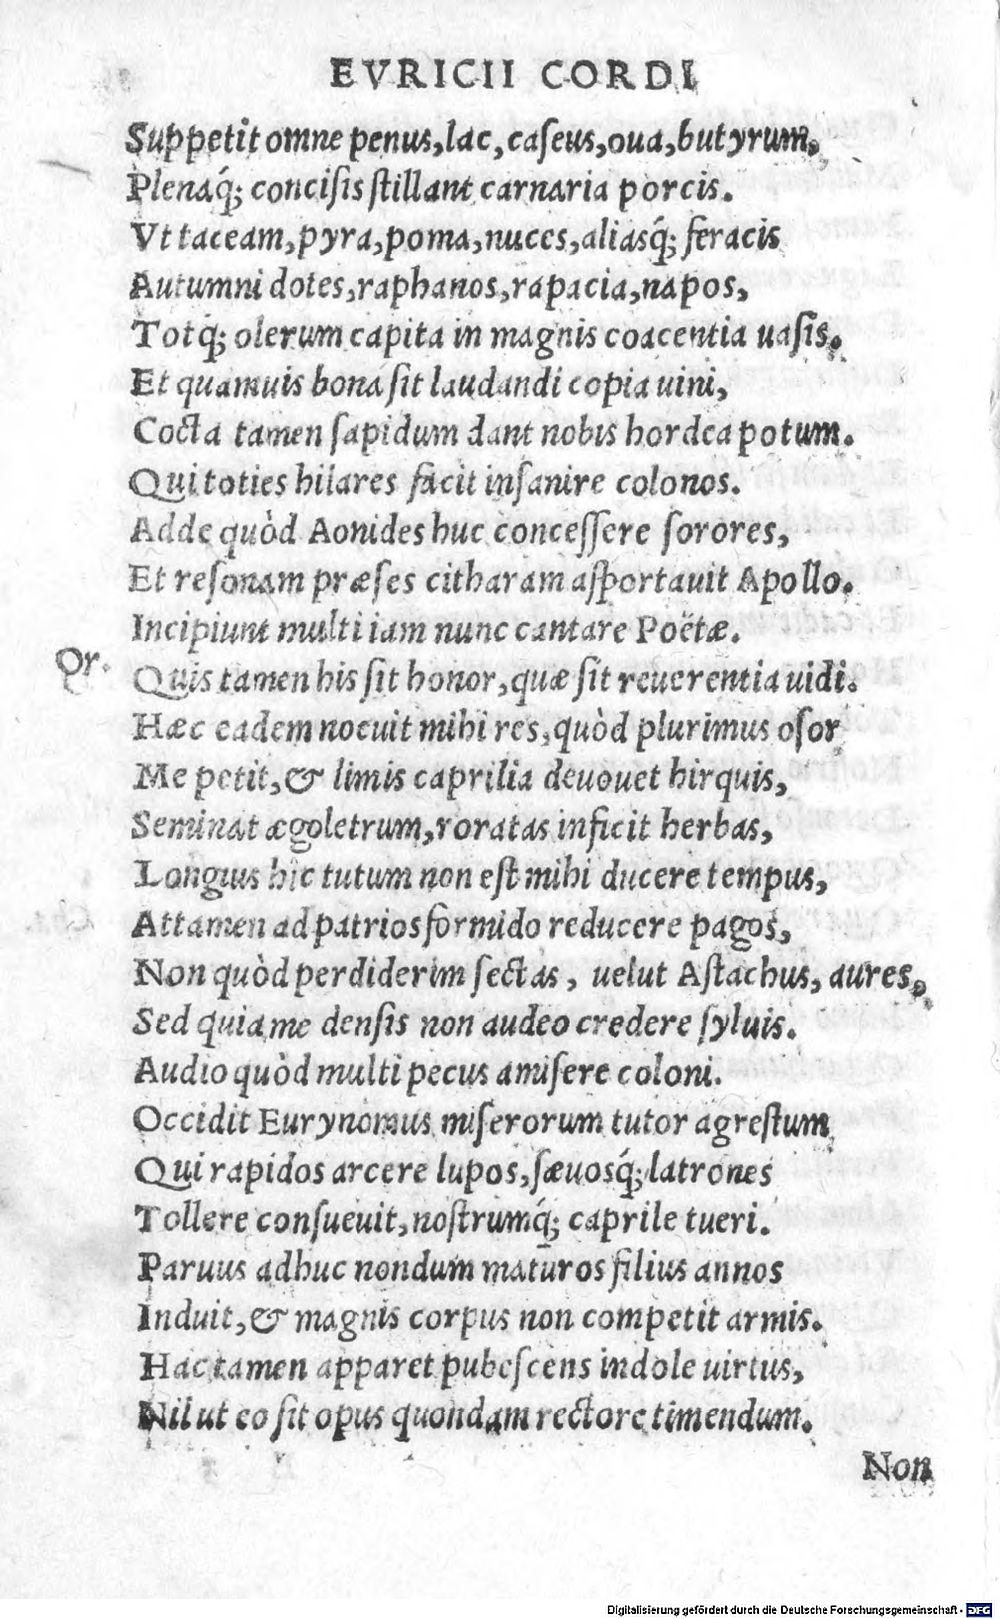 EVRICII CORDI
Suppetit omne penus, lac, caſeus, oua, butyrum,
Plenaq́; conciſis ſtillant carnaria porcis.
Vt taceam, pyra, poma, nuces, aliasq́; feracis
Autumni dotes, raphanos, rapacia, napos,
Totq́; olerum capita in magnis coacentia uaſis.
Et quamuis bona ſit laudandi copia uini,
Cocta tamen ſapidum dant nobis hordea potum.
Qui toties hilares facit inſanire colonos.
Adde quòd Aonides huc conceſſere ſorores,
Et reſonam præſes citharam aſportauit Apollo.
Incipiunt multi iam nunc cantare Poëtæ.
Or. Quis tamen his ſit honor, quæ ſit reuerentia uidi.
Hæc eadem nocuit mihi res, quòd plurimus oſor
Me petit, & limis caprilia deuouet hirquis,
Seminat ægoletrum, roratas inficit herbas,
Longius hic tutum non eſt mihi ducere tempus,
Attamen ad patrios formido reducere pagos,
Non quòd perdiderim ſectas, uelut Aſtachus, aures,
Sed quia me denſis non audeo credere ſyluis.
Audio quòd multi pecus amiſere coloni.
Occidit Eurynomus miſerorum tutor agreſtum
Qui rapidos arcere lupos, ſæuosq́; latrones
Tollere conſueuit, noſtrumq́; caprile tueri.
Paruus adhuc nondum maturos filius annos
Induit, & magnis corpus non competit armis.
Hac tamen apparet pubeſcens indole uirtus,
Nil ut eo ſit opus quondam rectore timendum.
Non
Digitalisierung gefördert durch die Deutsche Forschungsgemeinschaft - DFG